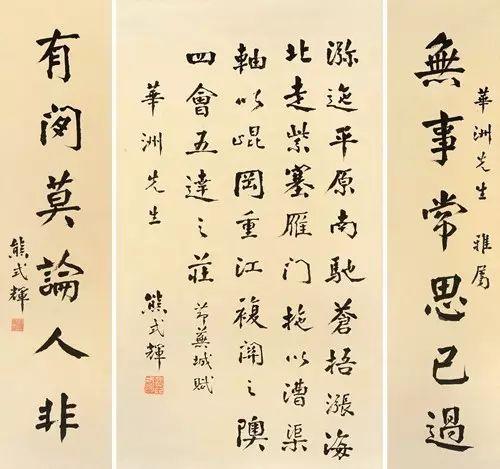 華洲先生 雅屬
無事常思己過
沵迤平原南馳蒼梧漲海
北走紫塞雁門拖以漕渠
軸以崐岡重江複關之隩
四會五達之莊 節蕪城賦
華洲先生 熊式輝
有閒莫論人非
熊式輝